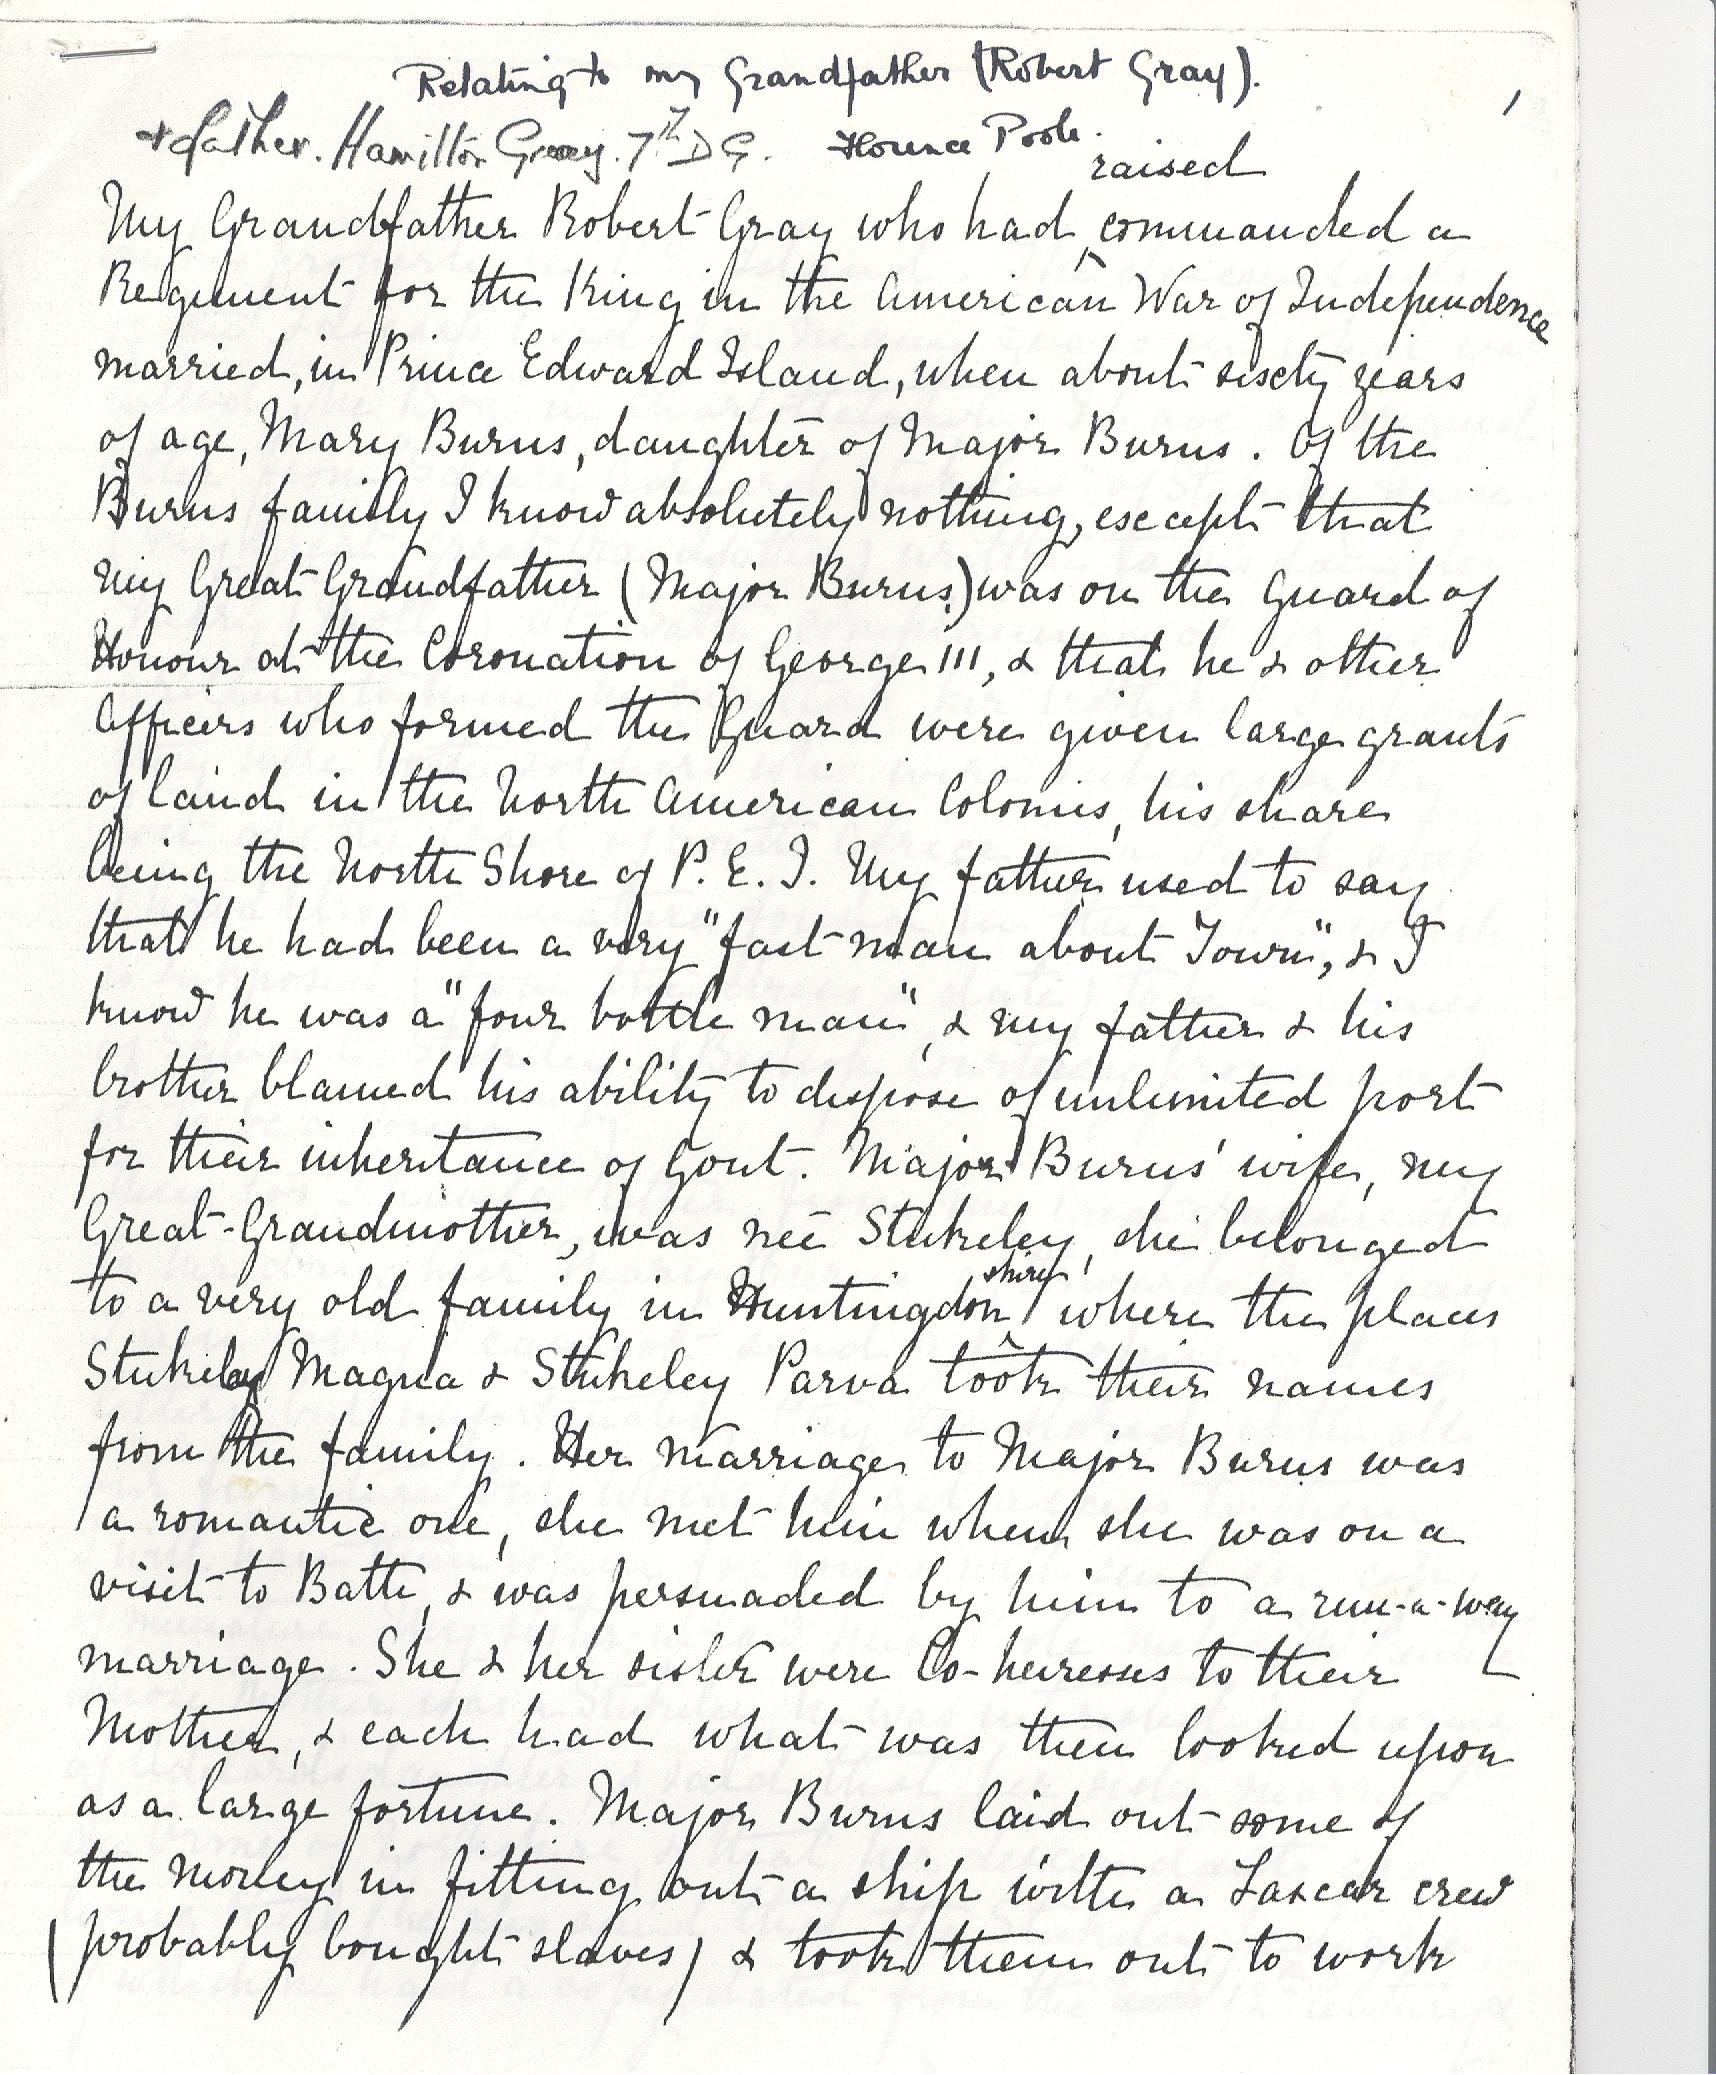 Relating to my Grandfather (Robert Gray).
1
& father. Hamilton Gray. 7th D G. Florence Poole.
raised
My Grandfather Robert Gray who had ^ commanded a
Regiment for the King in the American War of Independence
married, in Prince Edward Island, when about sixty years
of age, Mary Burns, daughter of Major Burns. Of the
Burns family I know absolutely nothing, except that
my Great Grandfather (Major Burns) was on the Guard of
Honour at the Coronation of George III, & that he & other
Officers who formed the Guard were given large grants
of land in the North American Colonies, his share
being the North Shore of P. E. I. My father used to say
that he had been a very "fast man about Town", & I
know he was a "four bottle man", & my father & his
brother blamed his ability to dispose of unlimited port
for their inheritance of Gout. Major Burns' wife, my
Great-Grandmother, was neé Stukeley, she belonged
shire,
to a very old family in Huntingdon where the places
Stukeley Magna & Stukeley Parva took their names
from the family. Her marriage to Major Burns was
a romantic one, she met him when she was on a
visit to Bath, & was persuaded by him to a run-a-way
marriage. She & her sister were Co-heiresses to their
Mother, & each had what was then looked upon
as a large fortune. Major Burns laid out some of
the money in fitting out a ship with a Lascar crew
(probably bought slaves) & took them out to work